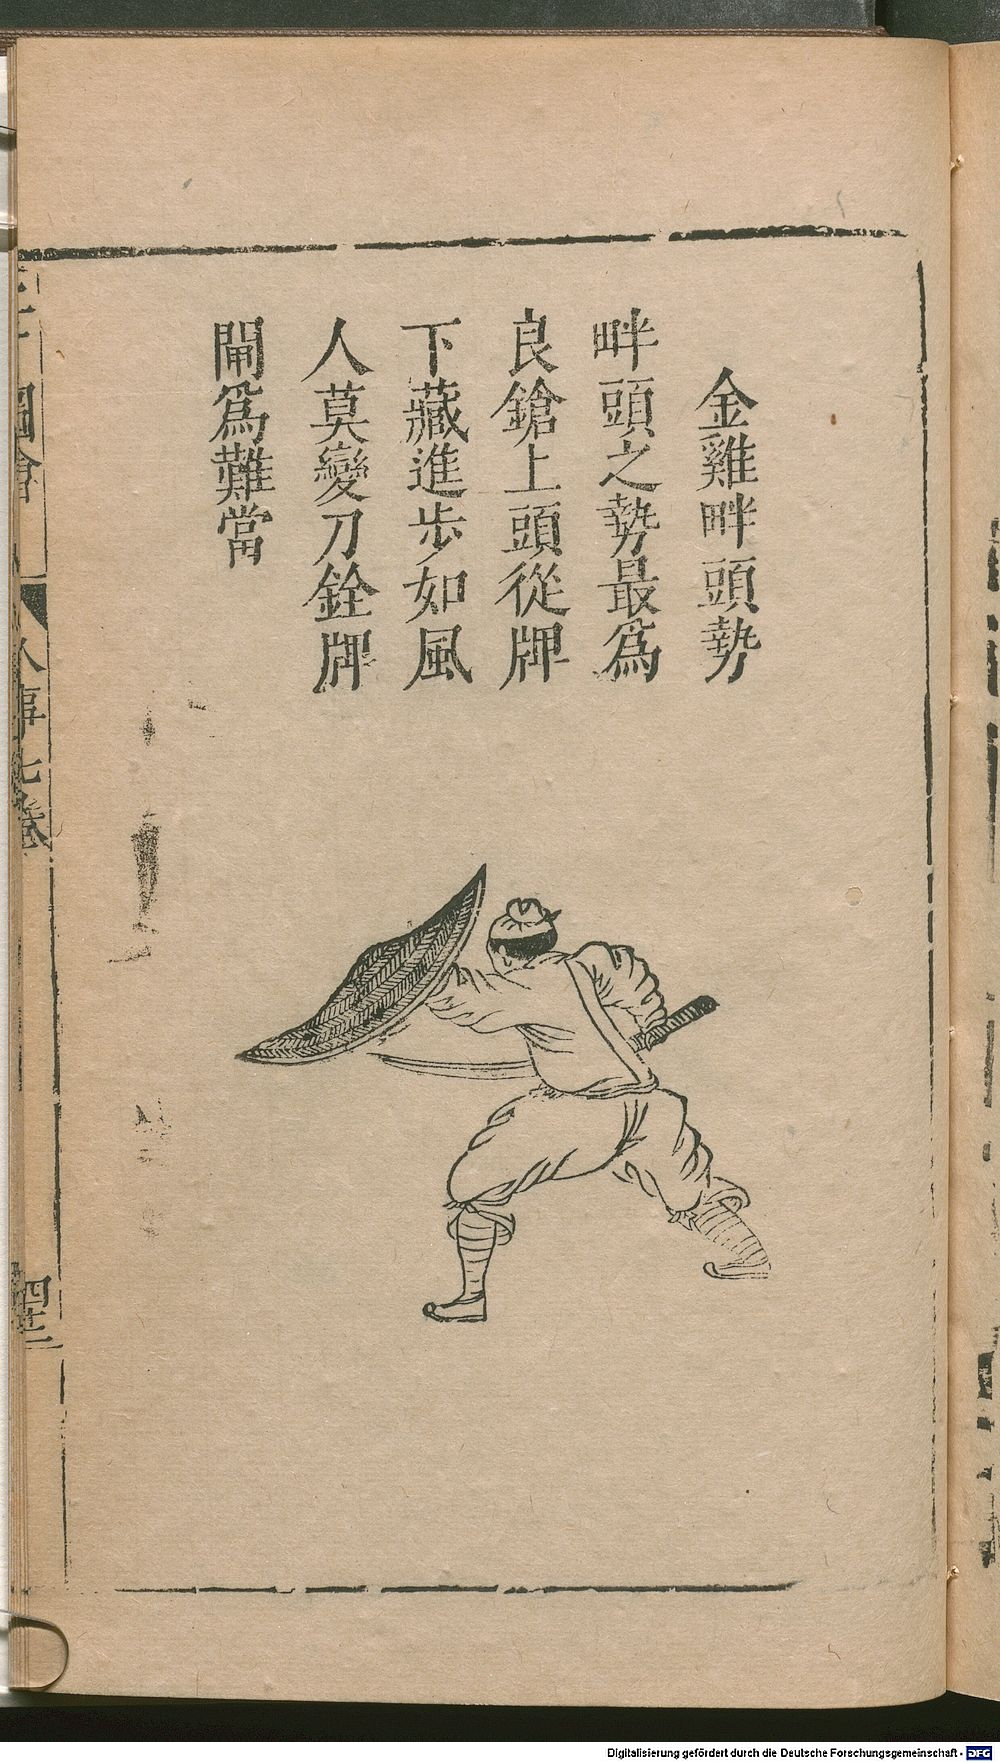 金雞畔頭勢
畔頭之勢最爲
良鎗上頭從牌
下藏進步如風
人莫變刀銓牌
閘爲難當
圖會
人事七卷
四十二
Digitalisierung gefördert durch die Deutsche Forschungsgemeinschaft - DFG